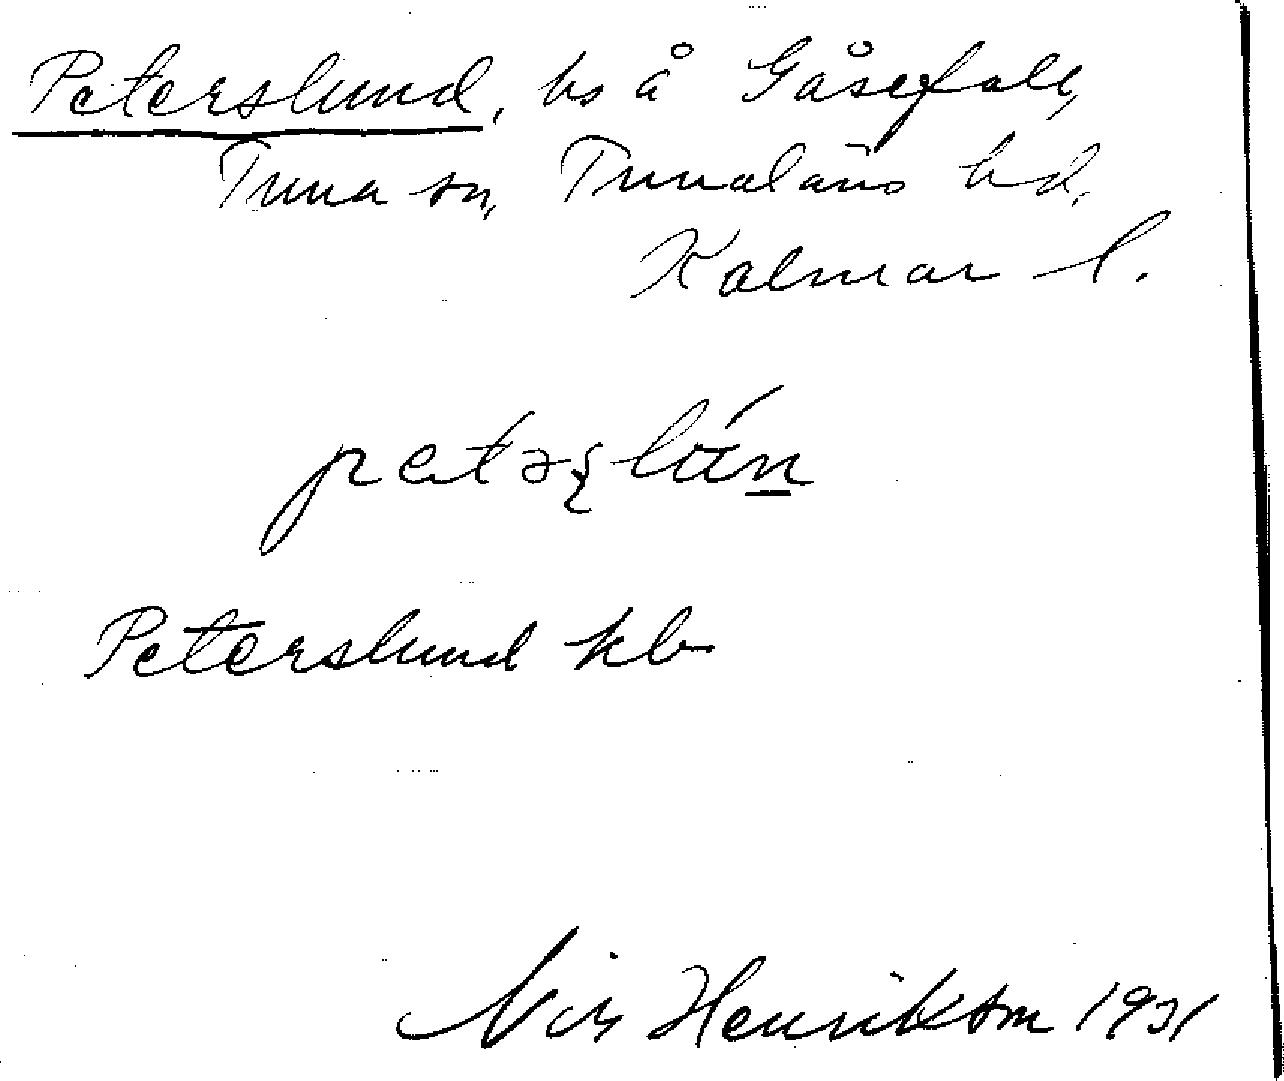 Peterslund, bs å Gåsefall,
Tuna sn, Tunaläns hd,
Kalmar l.
Peterslund kb
Nils Henrikson 1931